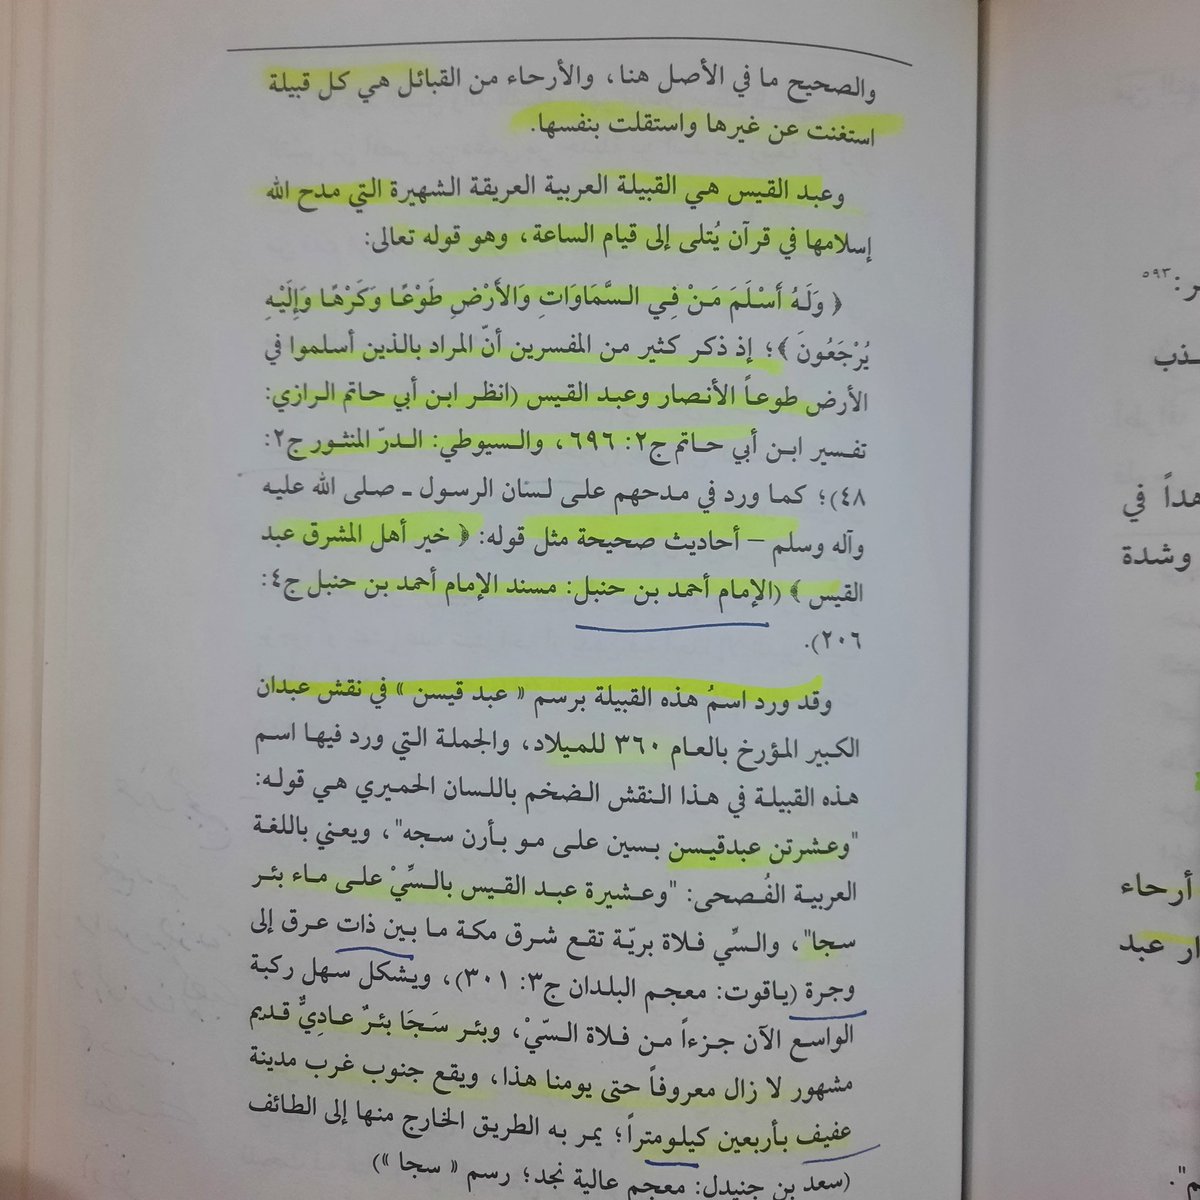 والصحيح ما في الأصل هنا، والأرحاء من القبائل هي كل قبيلة
استغنت عن غيرها واستقلت بنفسها.
وعبد القيس هي القبيلة العربية العريقة الشهيرة التي مدح الله
إسلامها في قرآن يُتلى إلى قيام الساعة، وهو قوله تعالى:
﴿ وَلَهُ أَسْلَمَ مَنْ فِي السَّمَاوَاتِ وَالأَرْضِ طَوْعًا وَكَرْهًا وَإِلَيْهِ
يُرْجَعُونَ ﴾؛ إذ ذكر كثير من المفسرين أنّ المراد بالذين أسلموا في
الأرض طوعاً الأنصار وعبد القيس (انظر ابن أبي حاتم الرازي:
تفسير ابن أبي حاتم ج٢: ٦٩٦، والسيوطي: الدرّ المنثور ج٢:
٤٨)؛ كما ورد في مدحهم على لسان الرسول - صلى الله عليه
وآله وسلم – أحاديث صحيحة مثل قوله: ﴿ خير أهل المشرق عبد
القيس ﴾ (الإمام أحمد بن حنبل: مسند الإمام أحمد بن حنبل ج٤:
٢٠٦).
وقد ورد اسمُ هذه القبيلة برسم « عبد قيسن » في نقش عبدان
الكبير المؤرخ بالعام ٣٦٠ للميلاد، والجملة التي ورد فيها اسم
هذه القبيلة في هذا النقش الضخم باللسان الحميري هي قوله:
"وعشرتن عبدقيسن بسين على مو بأرن سجه"، ويعني باللغة
العربية الفُصحى: "وعشيرة عبد القيس بالسِّيْ على ماء بئر
سجا"، والسِّي فلاة بريّة تقع شرق مكة ما بين ذات عرق إلى
وجرة (ياقوت: معجم البلدان ج٣: ٣٠١)، ويشكل سهل ركبة
الواسع الآن جزءاً من فلاة السّيْ، وبئر سَجَا بئرٌ عاديٌّ قديم
مشهور لا زال معروفاً حتى يومنا هذا، ويقع جنوب غرب مدينة
عفيف بأربعين كيلومتراً؛ يمر به الطريق الخارج منها إلى الطائف
(سعد بن جنيدل: معجم عالية نجد؛ رسم « سجا »)
ر: ٥٩٣
ـذب
هداً في
وشدة
أرحاء
ار عبد
م".